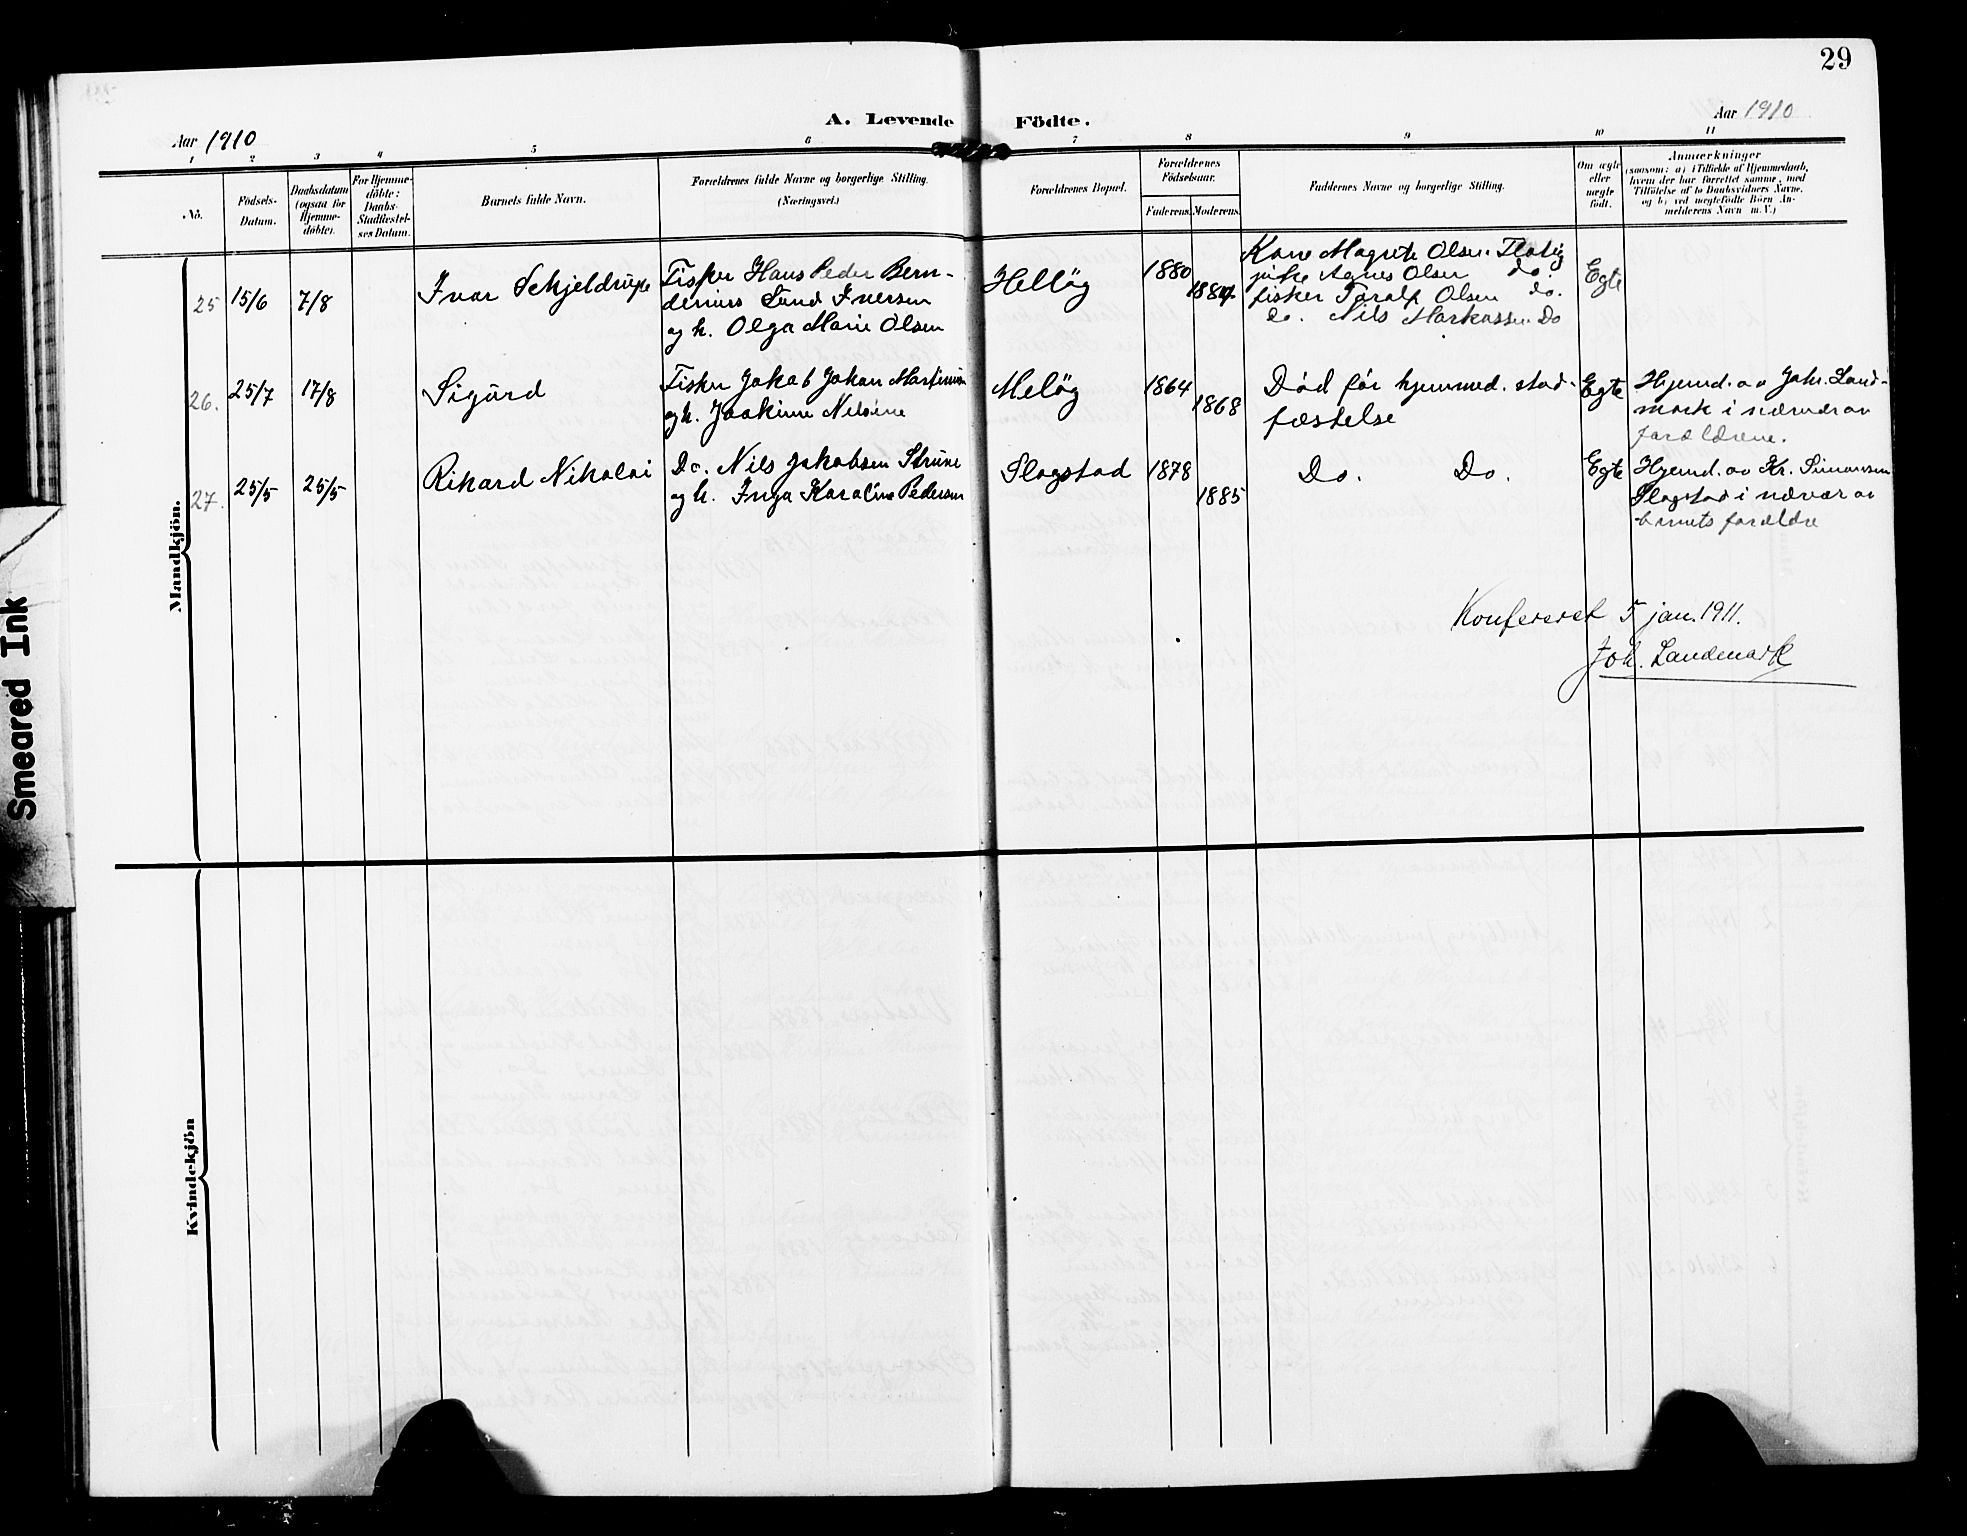 29
A. Levende Födte.
Aar 1910
Aar 1910
1 2 3 4 5 6 7 8 9 10 11
No.
Födsels-
Datum.
Daabsdatum
(ogsaa for
Hjemme-
döbte).
For Hjemme-
döbte:
Daabs-
Stadfæstel-
ses Datum.
Barnets fulde Navn.
Forældrenes fulde Navne og borgerlige Stilling.
(Næringsvei.)
Forældrenes Bopæl.
Forældrenes
Födselsaar.
Faderens. Moderens.
Faddernes Navne og borgerlige Stilling.
Om ægte
eller
uægte
födt.
Anmærkninger
(saasom: a) i Tilfælde af Hjemmedaab,
hvem der har forrettet samme, med
Tilföielse af to Daabsvidners Navne,
og b) ved uægtefödte Börn An-
melderens Navn m.V.)
Mandkjön.
25 15/6 7/8
Ivar Schjeldrupe
Fisker Hans Peder Bern-
dinius Lund Iversen
og h. Olga Marie Olsen
Hellög
1880
1884
Kone Magrete Olsen
pike Agnes Olsen do.
fisker Toralf Olsen do.
do. Nils Markussen Do
Egte
26. 25/7 17/8
Sigurd
Fisker Jakob Johan
og h. Joakime
Melög
1864
1868
Död för hjemmed. stad-
fæstelse
Egte
Hjemd. av Joh. Land-
mark i nærvær av
forældrene.
27. 25/5 25/5
Rikard Nikolai
Do. Nils Jakobsen Strune
og h. Inga Karoline Pedersen
Slogstad
1878
1885
Do. Do.
Egte
Hjemd. av Kr. Simonsen
Slogstad i nærvær av
barnets forældre
Konfereret 5 jan. 1911.
Joh. Landmark
Kvindekjön
Smeared Ink